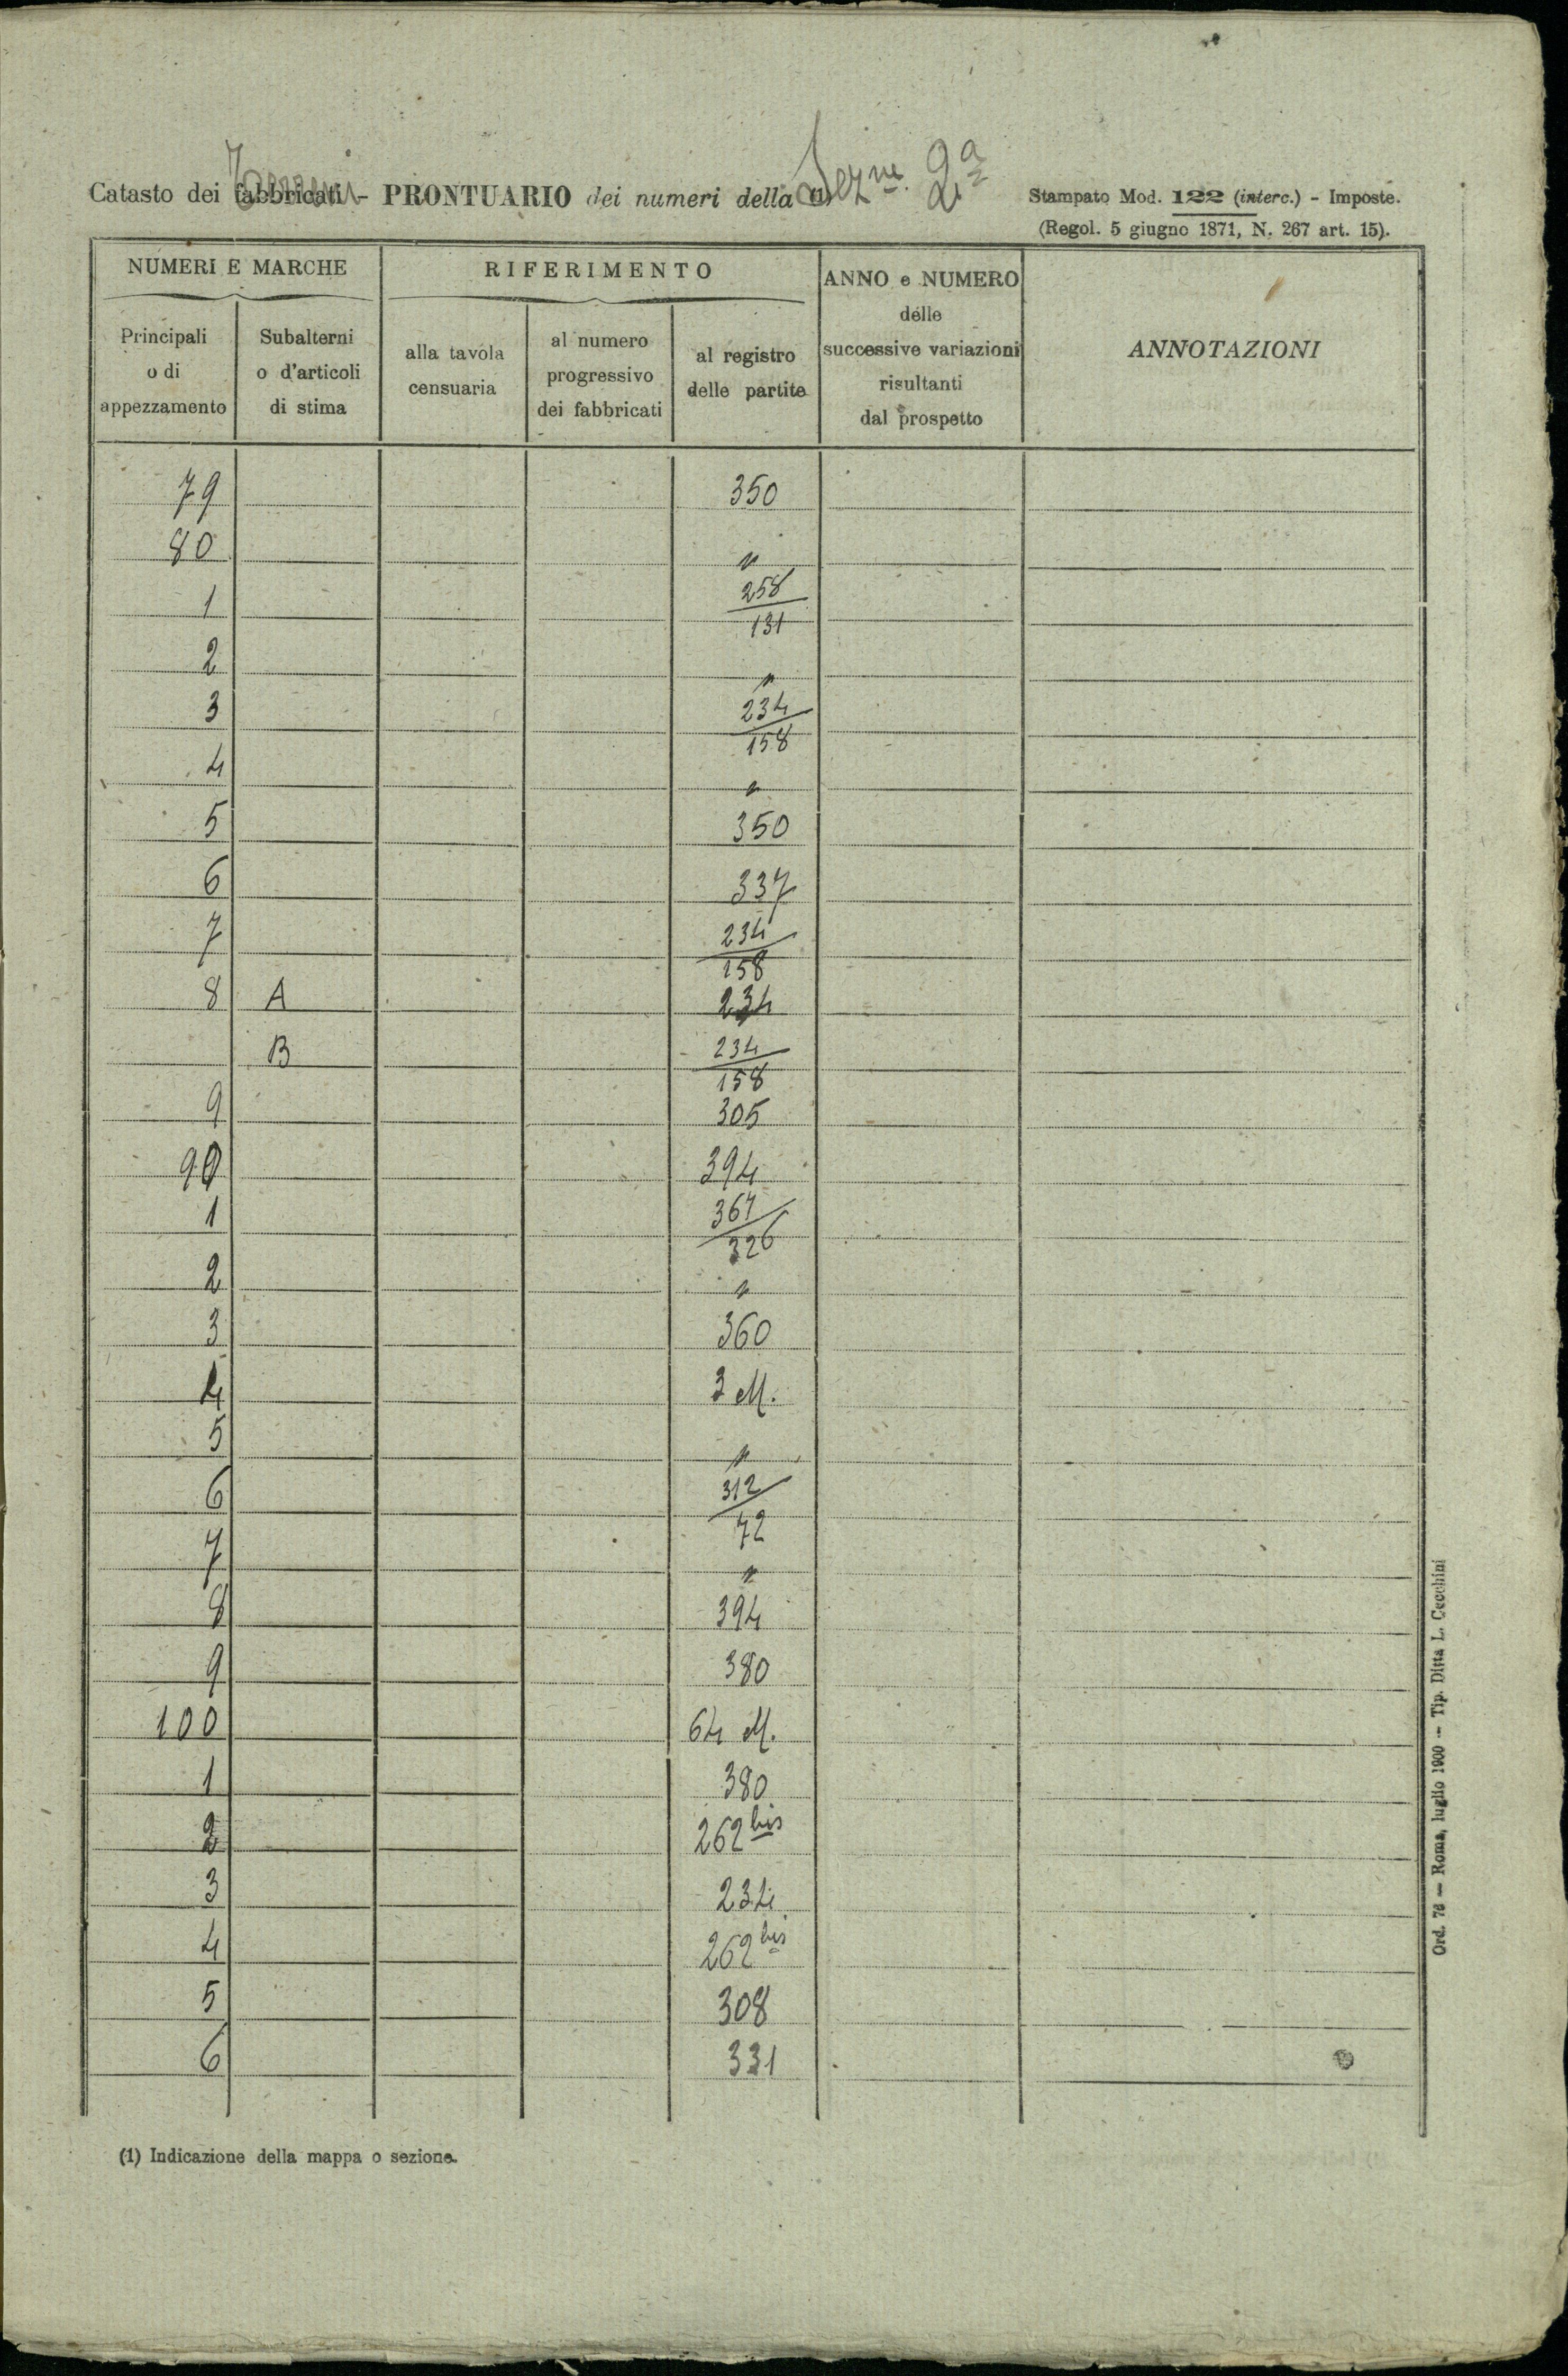 Catasto dei fabbricati Terreni - PRONTUARIO dei numeri della (1) Sez.ne 2ª
Stampato Mod. 122 (interc.) - Imposte.
(Regol. 5 giugno 1871, N. 267 art. 15).
NUMERI E MARCHE
Principali o di appezzamento
Subalterni o d'articoli di stima
RIFERIMENTO
alla tavola censuaria
al numero progressivo dei fabbricati
al registro delle partite
ANNO e NUMERO delle successive variazioni risultanti dal prospetto
ANNOTAZIONI
79 350
80 "
1 258/131
2 "
3 234/158
4 "
5 350
6 337
7 234/158
8 A 234
B 234/158
9 305
90 394
1 367/326
2 "
3 360
4 3 M.
5 "
6 312/72
7 "
8 394
9 380
100 64 M.
1 380
2 262 bis
3 234
4 262 bis
5 308
6 331
(1) Indicazione della mappa o sezione.
Ord. 76 — Roma, luglio 1900 — Tip. Ditta L. Cecchini